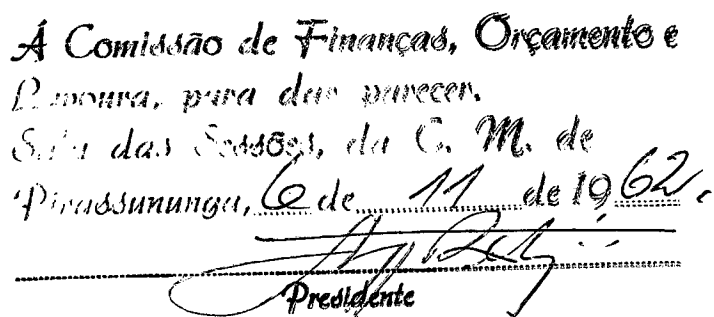 Á Comissão de Finanças, Orçamento e
Lavoura, para dar parecer.
Sala das Sessões, da C. M. de
Pirassununga, 6 de 11 de 1962.
Presidente